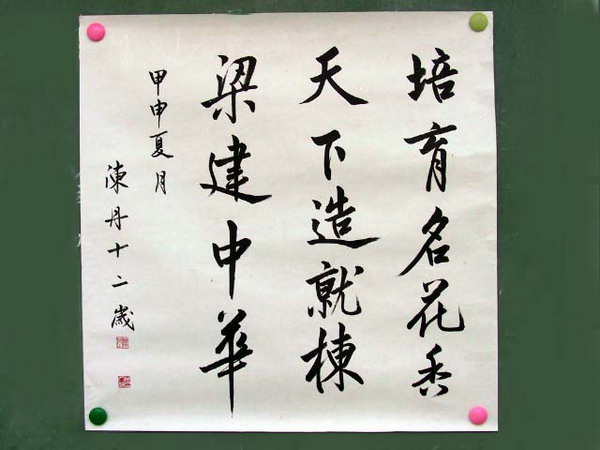 培育名花香
天下造就棟
梁建中華
甲申夏月
陳丹十二歲